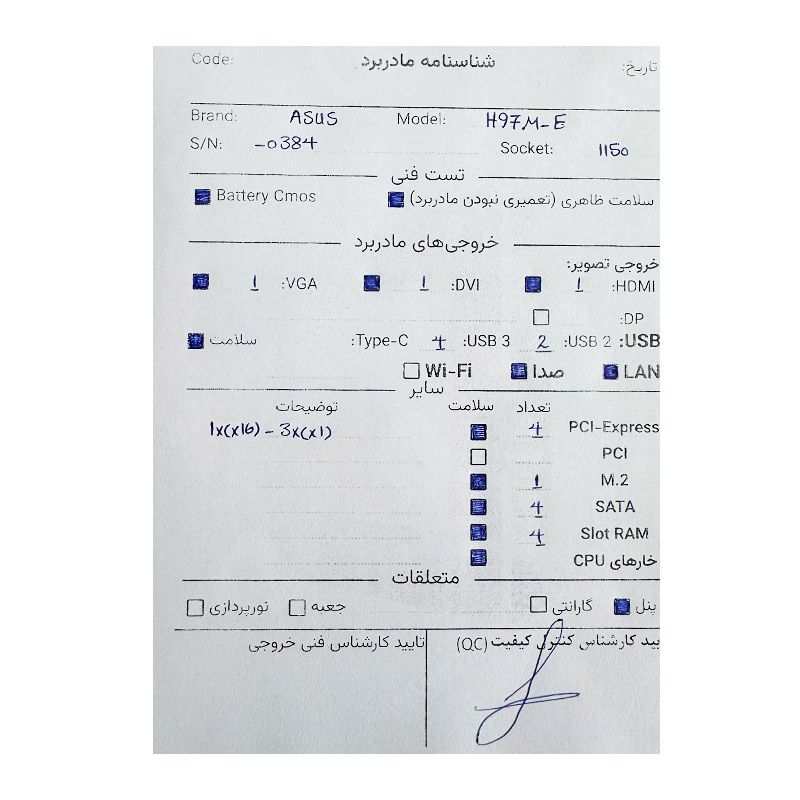 شناسنامه مادربرد
تاریخ:
Code:
Brand: ASUS Model: H97M-E
S/N: -0384 Socket: 1150
تست فنی
سلامت ظاهری (تعمیری نبودن مادربرد)
Battery Cmos
خروجی‌های مادربرد
خروجی تصویر:
HDMI: 1 DVI: 1 VGA: 1
DP:
USB: USB 2: 2 USB 3: 4 Type-C: سلامت
LAN صدا Wi-Fi
سایر
تعداد سلامت توضیحات
PCI-Express 4 1x(x16) - 3x(x1)
PCI
M.2 1
SATA 4
Slot RAM 4
خارهای CPU
متعلقات
پنل گارانتی جعبه نورپردازی
یید کارشناس کنترل کیفیت (QC) تایید کارشناس فنی خروجی